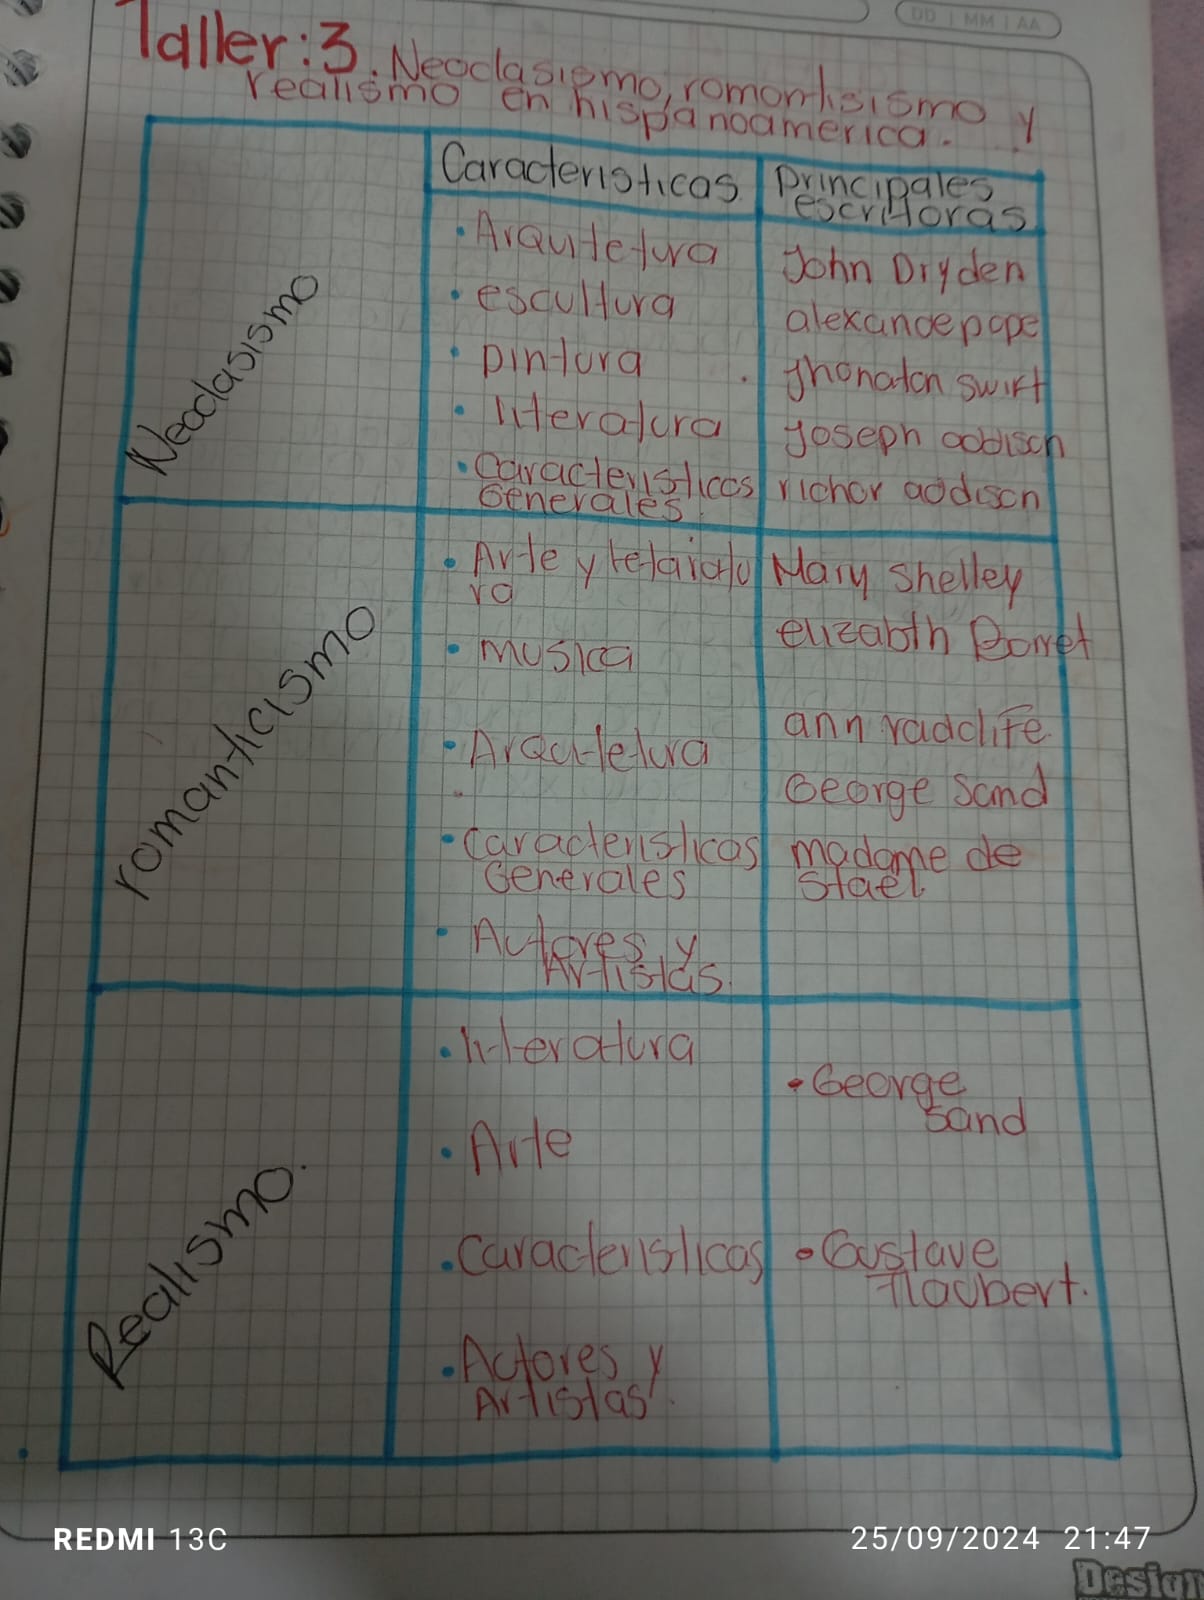 DD | MM | AA
Taller:3. Neoclasismo, romontisismo y
realismo en hispanoamerica.
Caracteristicas
Principales
escritoras
Neoclasismo
• Arquitetura
• escultura
• pintura
• literatura
• caracteristicas
Generales.
John Dryden
alexande pope
Jhonaton swift
Joseph addisch
richor addison
romanticismo
• Arte y
ra
• musica
• Arquitetura
• caracteristicas
Generales
• Autores y
Artistas.
Mary Shelley
elizabth Borret
ann radclife
George Sand
madame de
Stael.
Realismo.
• literatura
• Arte
• caracteristicas
• Actores y
Artistas.
• George
Sand
• Gustave
flaubert.
REDMI 13C
25/09/2024 21:47
Design